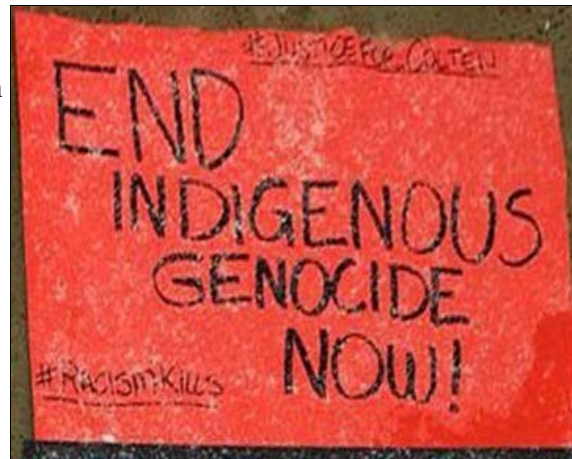 #JUSTICEFOR COLTEN
END
INDIGENOUS
GENOCIDE
NOW!
#RACISMKILLS